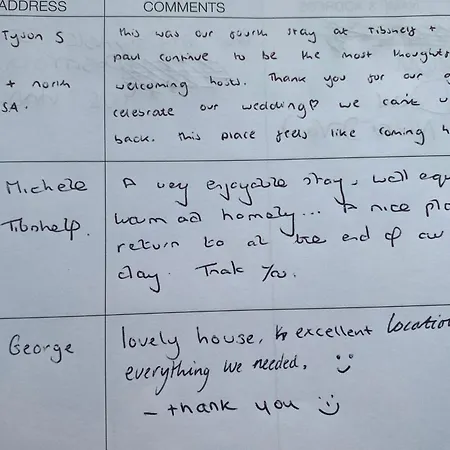 ADDRESS COMMENTS
Tyson S
+ north
SA.
this was our fourth stay at Tibshelf +
paul continue to be the most thoughtf
welcoming hosts. Thank you for our g
celebrate our wedding♡ we can't w
back. this place feels like coming h
Michele
Tibshelf.
A very enjoyable stay, well equ
warm ad homely... A nice pla
return to at the end of our
day. Thak You.
George
lovely house, excellent location
everything we needed. :)
– thank you :)